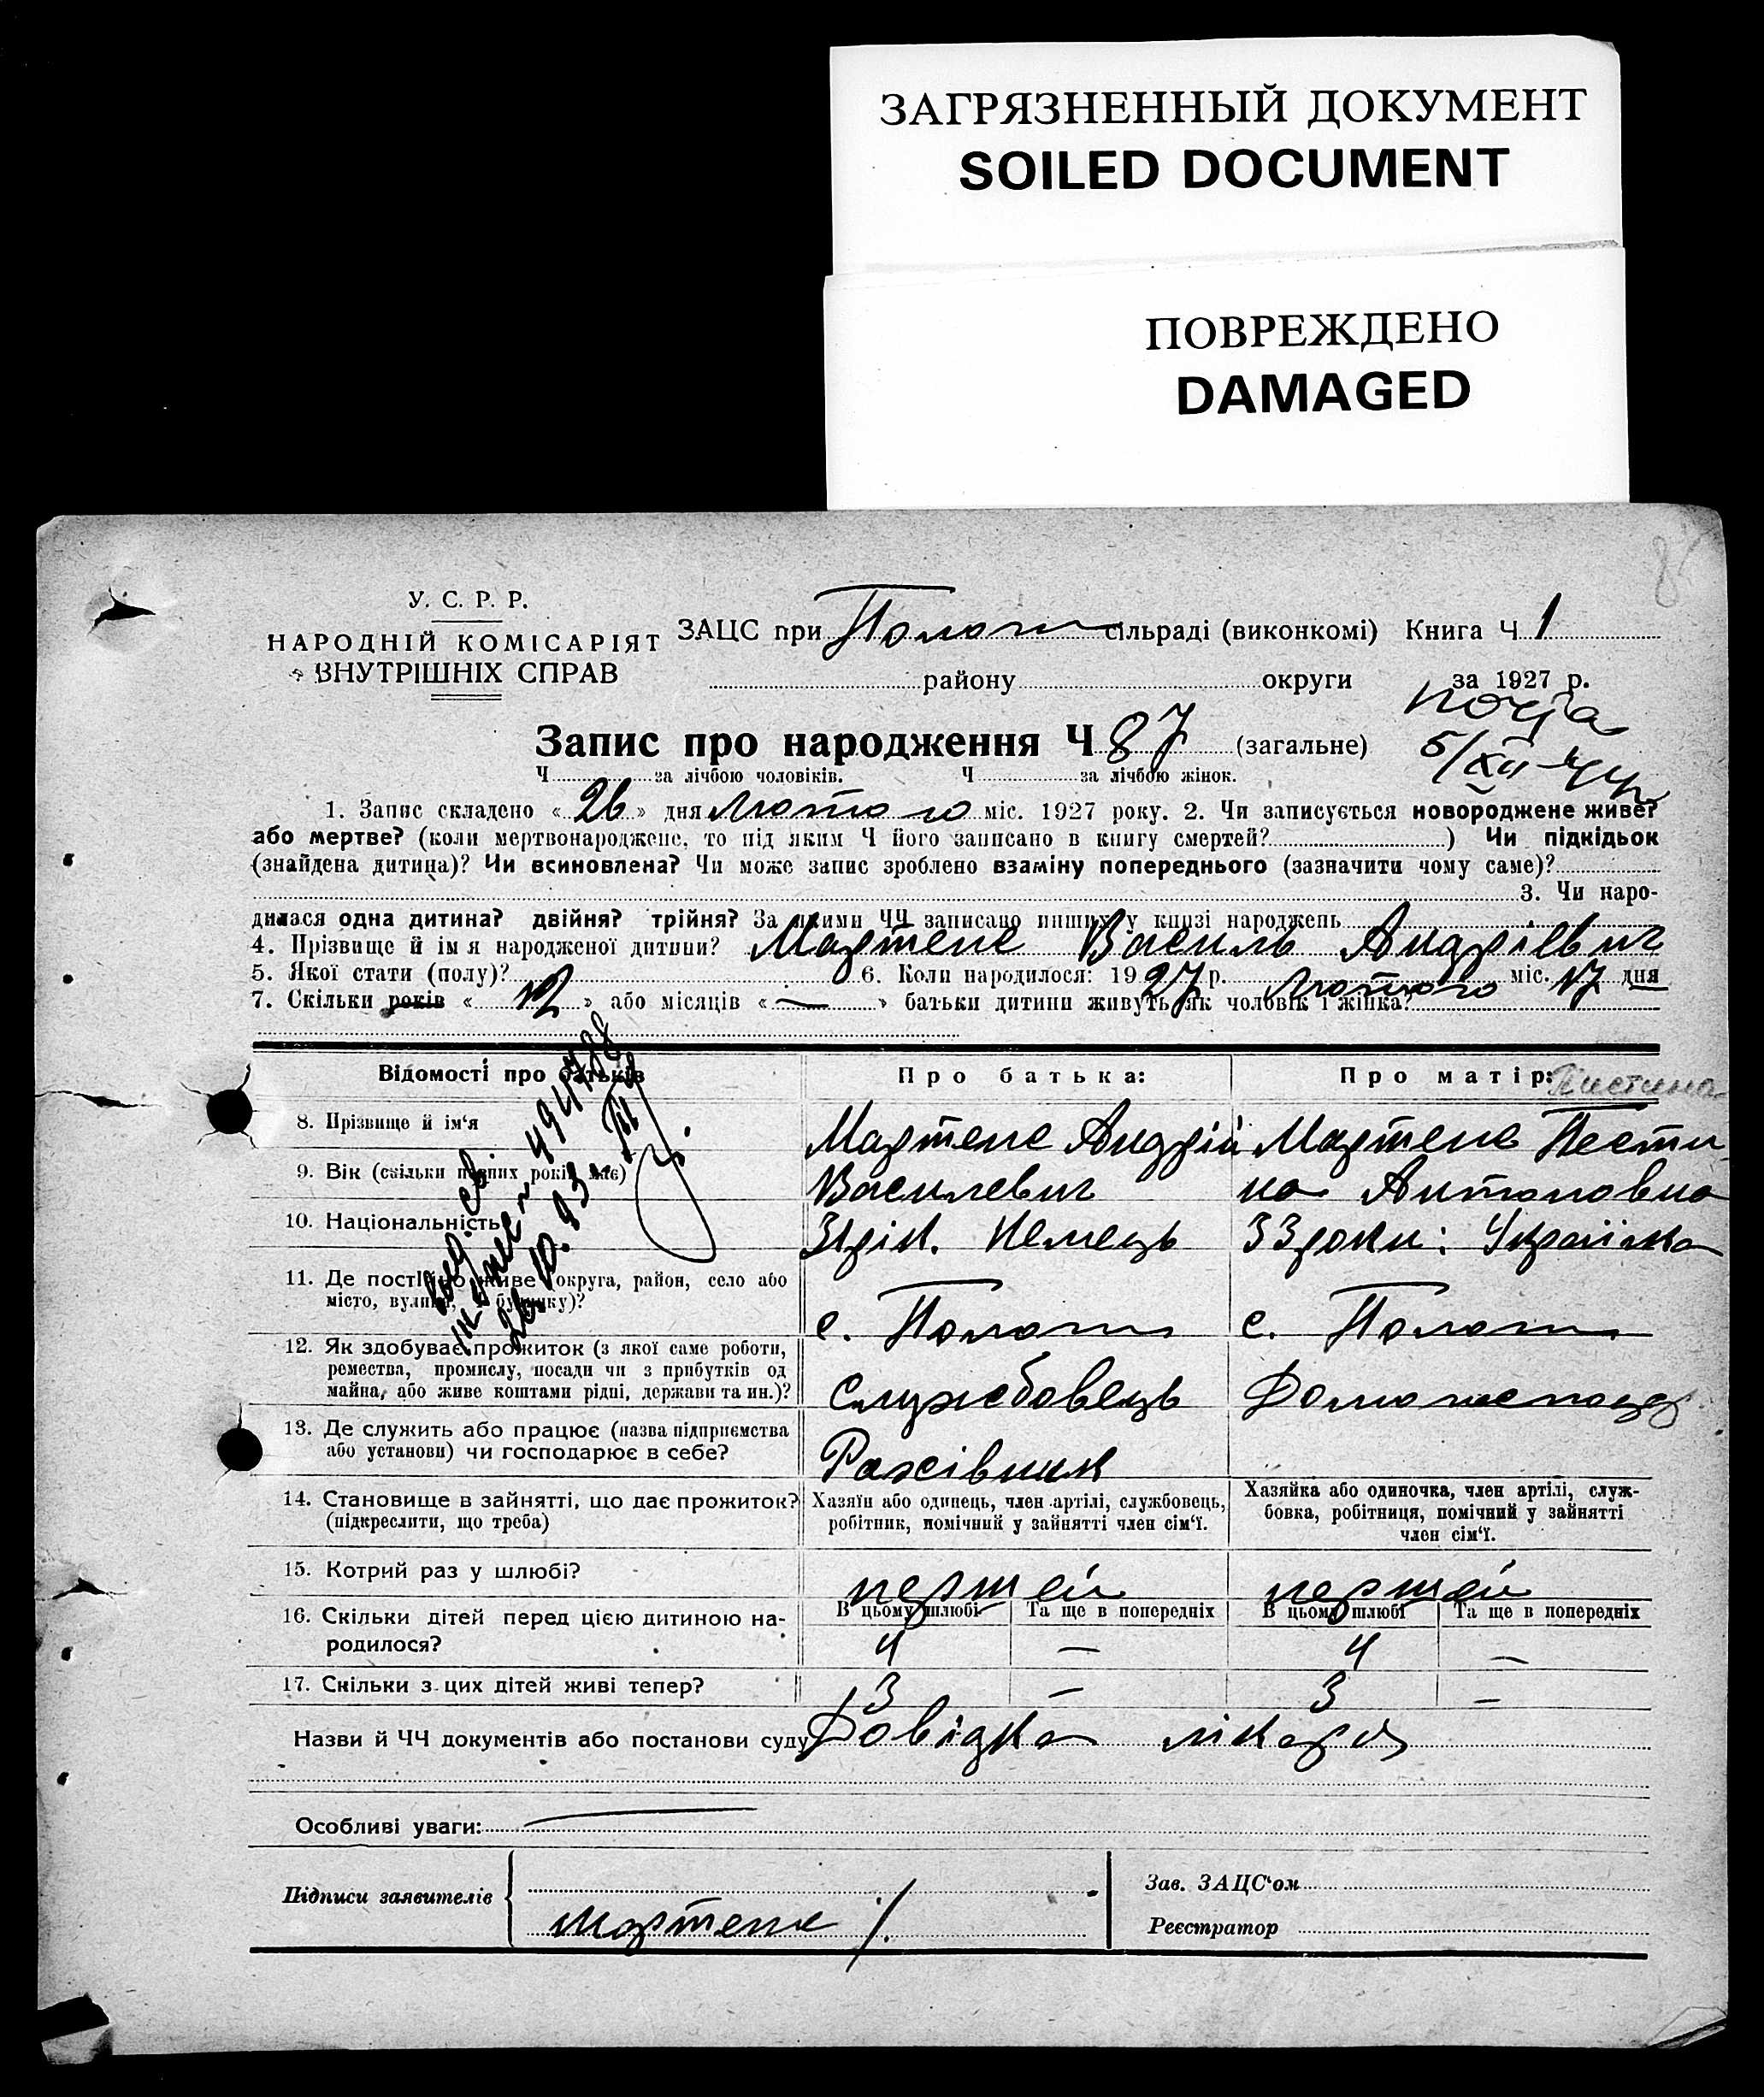 ЗАГРЯЗНЕННЫЙ ДОКУМЕНТ
SOILED DOCUMENT
ПОВРЕЖДЕНО
DAMAGED
У. С. Р. Р.
НАРОДНІЙ КОМІСАРІЯТ
ВНУТРІШНІХ СПРАВ
ЗАЦС при Пологи сільраді (виконкомі) Книга Ч. 1
району округи за 1927 р.
Запис про народження Ч 87 (загальне)
5/XII-44
Ч за лічбою чоловіків. Ч за лічбою жінок.
1. Запис складено « 26 » дня Лютого міс. 1927 року. 2. Чи записується новороджене живе?
або мертве? (коли мертвонароджене, то під яким Ч його записано в книгу смертей? ) Чи підкідьок
(знайдена дитина)? Чи всиновлена? Чи може запис зроблено взаміну попереднього (зазначити чому саме)?
3. Чи наро-
дилася одна дитина? двійня? трійня? За якими ЧЧ записано инших у книзі народжень
4. Прізвище й ім я народженої дитини? Мартенс Василь Андрієвич
5. Якої стати (полу)? 6. Коли народилося: 1927 р. Лютого міс. 17 дня
7. Скільки років « 12 » або місяців « — » батьки дитини живуть як чоловік і жінка?
Відомості про батьків
Про батька:
Про матір: Пистина
8. Прізвище й ім‘я
Мартенс Андрій Мартенс Пести
9. Вік (скільки повних років має)
Василевич на Антоновна
10. Національність
31 рік. Немець 33 роки: Українка
11. Де постійно живе (округа, район, село або
місто, вулиця, Ч будинку)?
с. Пологи с. Пологи
12. Як здобуває прожиток (з якої саме роботи,
ремества, промислу, посади чи з прибутків од
майна, або живе коштами рідні, держави та ин.)?
Службовець Домогоспод.
13. Де служить або працює (назва підприємства
або установи) чи господарює в себе?
14. Становище в зайнятті, що дає прожиток?
(підкреслити, що треба)
Хазяїн або одинець, член артілі, службовець,
робітник, помічний у зайнятті член сім‘ї.
Хазяйка або одиночка, член артілі, служ-
бовка, робітниця, помічний у зайнятті
член сім‘ї.
15. Котрий раз у шлюбі?
першей першей
16. Скільки дітей перед цією дитиною на-
родилося?
В цьому шлюбі Та ще в попередніх В цьому шлюбі Та ще в попередніх
4 — 4 —
17. Скільки з цих дітей живі тепер?
3 — 3 —
Назви й ЧЧ документів або постанови суду Довідка лікаря
Особливі уваги:
Підписи заявителів
Мартенс
Зав. ЗАЦС‘ом
Реєстратор